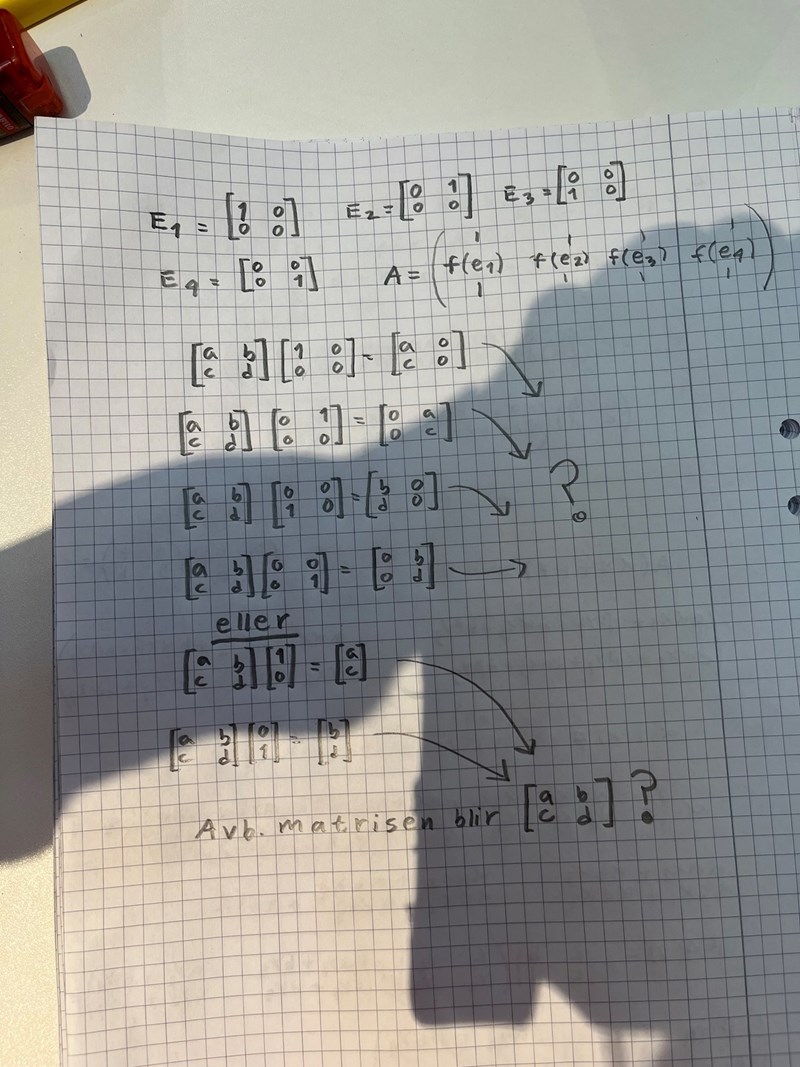 E1 = [1 0; 0 0] E2 = [0 1; 0 0] E3 = [0 0; 1 0]
E4 = [0 0; 0 1] A = (f(e1) f(e2) f(e3) f(e4))
[a b; c d] [1 0; 0 0] = [a 0; c 0]
[a b; c d] [0 1; 0 0] = [0 a; 0 c]
[a b; c d] [0 0; 1 0] = [b 0; d 0] ?
[a b; c d] [0 0; 0 1] = [0 b; 0 d]
eller
[a b; c d] [1; 0] = [a; c]
[a b; c d] [0; 1] = [b; d]
Avb. matrisen blir [a b; c d] ?